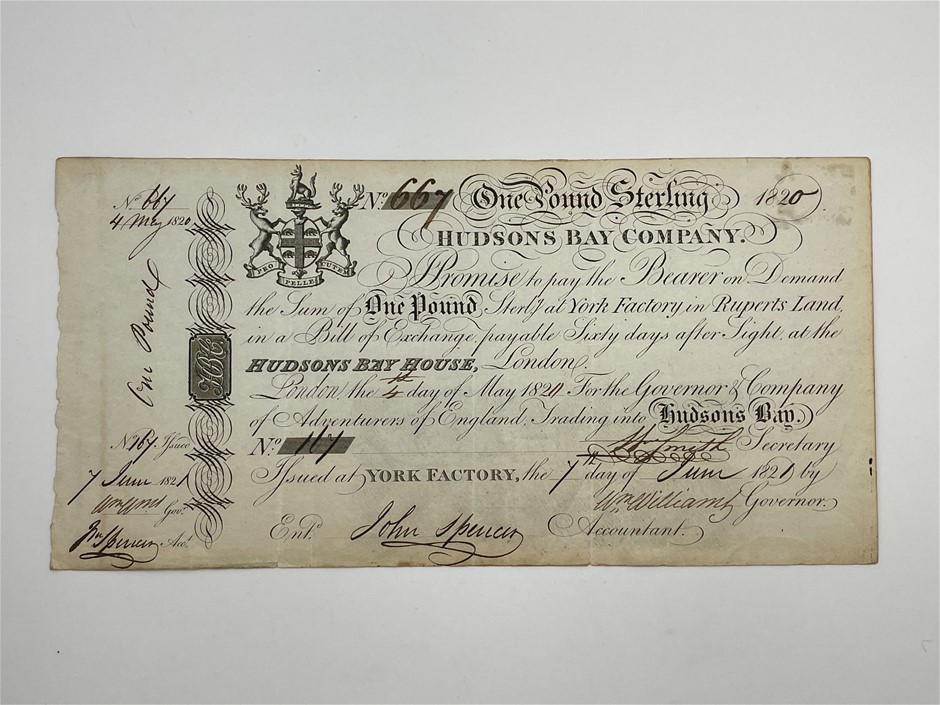 No. 667
4 May 1820
One Pound
HBC
No. 167 Issued
7 June 1821
Govr.
Jn Spencer Acct.
PRO
PELLE
CUTEM
No. 667 One Pound Sterling 1820
HUDSONS BAY COMPANY.
I Promise to pay the Bearer on Demand
the Sum of One Pound Sterlg. at York Factory in Ruperts Land,
in a Bill of Exchange payable Sixty days after Sight at the
HUDSONS BAY HOUSE, London.
London the 4th day of May 1820. For the Governor & Company
of Adventurers of England, Trading into Hudsons Bay.
No. 167 Wm Smith Secretary
Issued at YORK FACTORY, the 7th day of June 1821 by
Wm Williams Governor.
Entd. John Spencer Accountant.